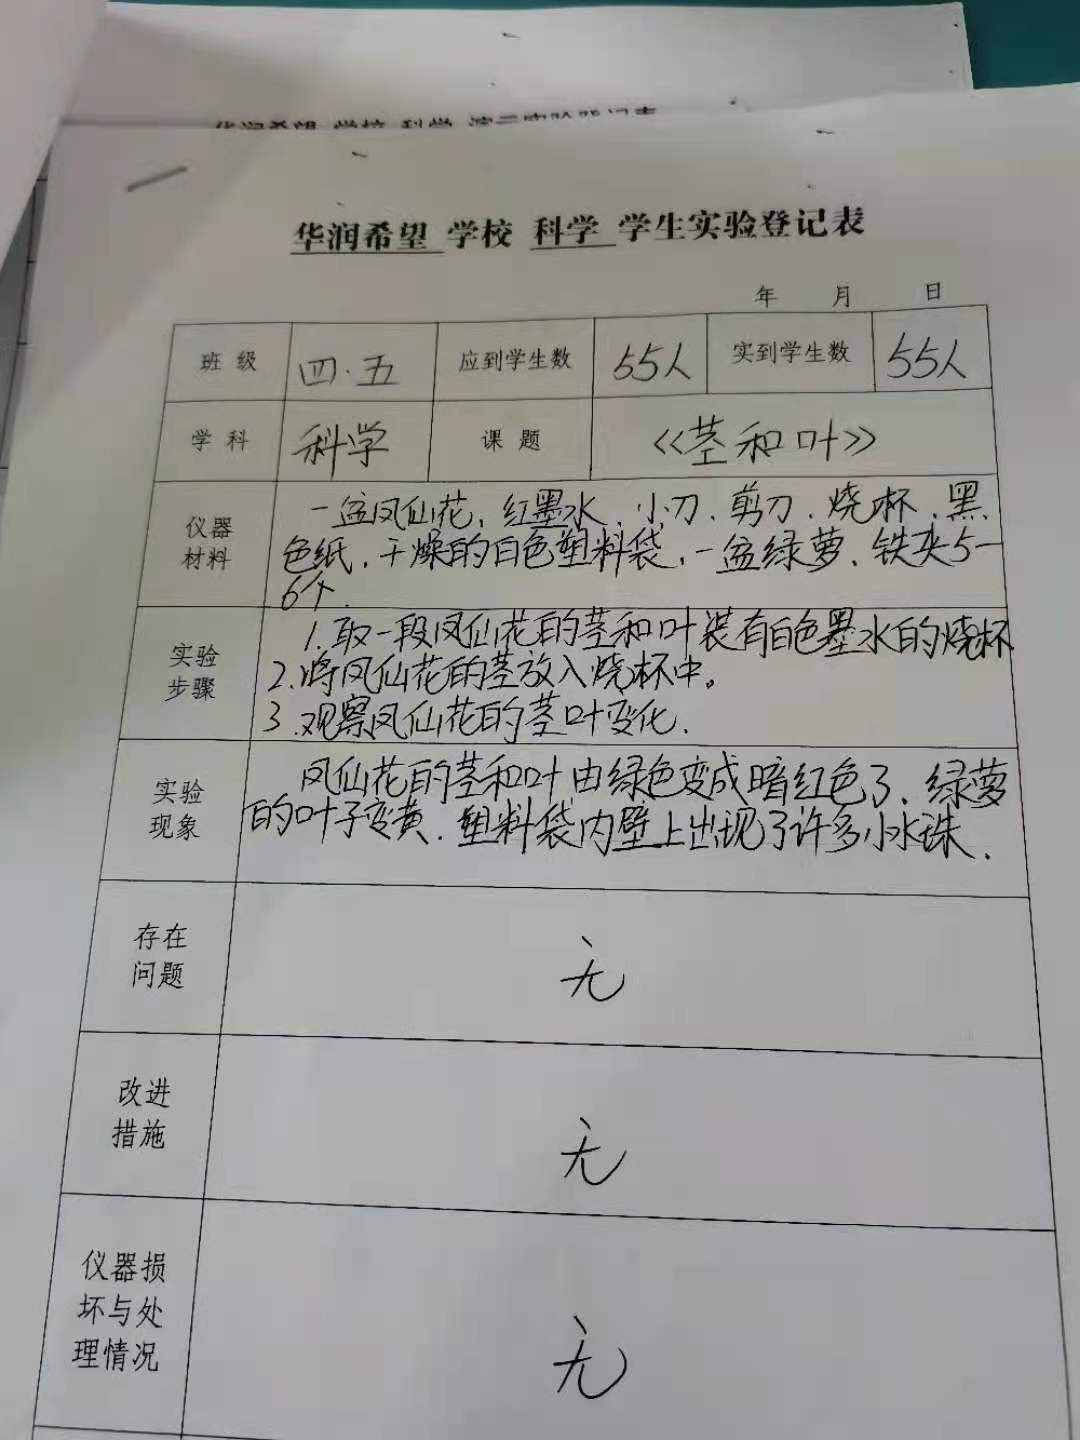 华润希望 学校 科学 学生实验登记表
年 月 日
班级 四.五 应到学生数 55人 实到学生数 55人
学科 科学 课题 《茎和叶》
仪器材料
一盆凤仙花、红墨水、小刀、剪刀、烧杯、黑
色纸、干燥的白色塑料袋、一盆绿萝、铁夹5一
6个.
实验步骤
1.取一段凤仙花的茎和叶装有白色墨水的烧杯
2.将凤仙花的茎放入烧杯中。
3.观察凤仙花的茎叶变化.
实验现象
凤仙花的茎和叶由绿色变成暗红色了、绿萝
的叶子变黄.塑料袋内壁上出现了许多小水珠.
存在问题
无
改进措施
无
仪器损坏与处理情况
无